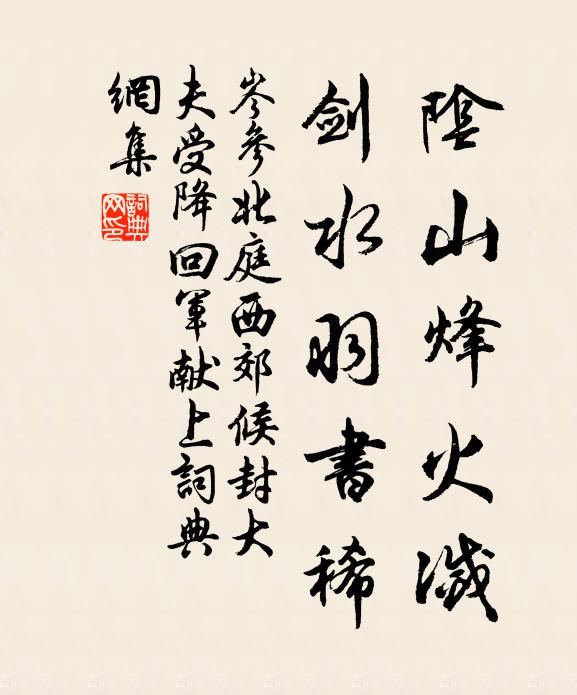 陰山烽火滅
劍水羽書稀
岑參北庭西郊候封大
夫受降回軍献上詞典
網集
詞典
网印